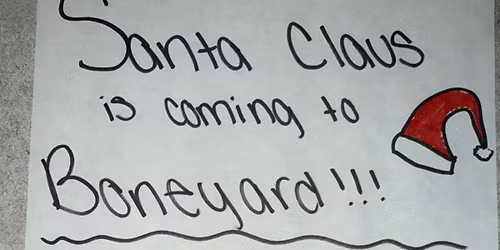 Santa Claus
is coming to
Boneyard!!!